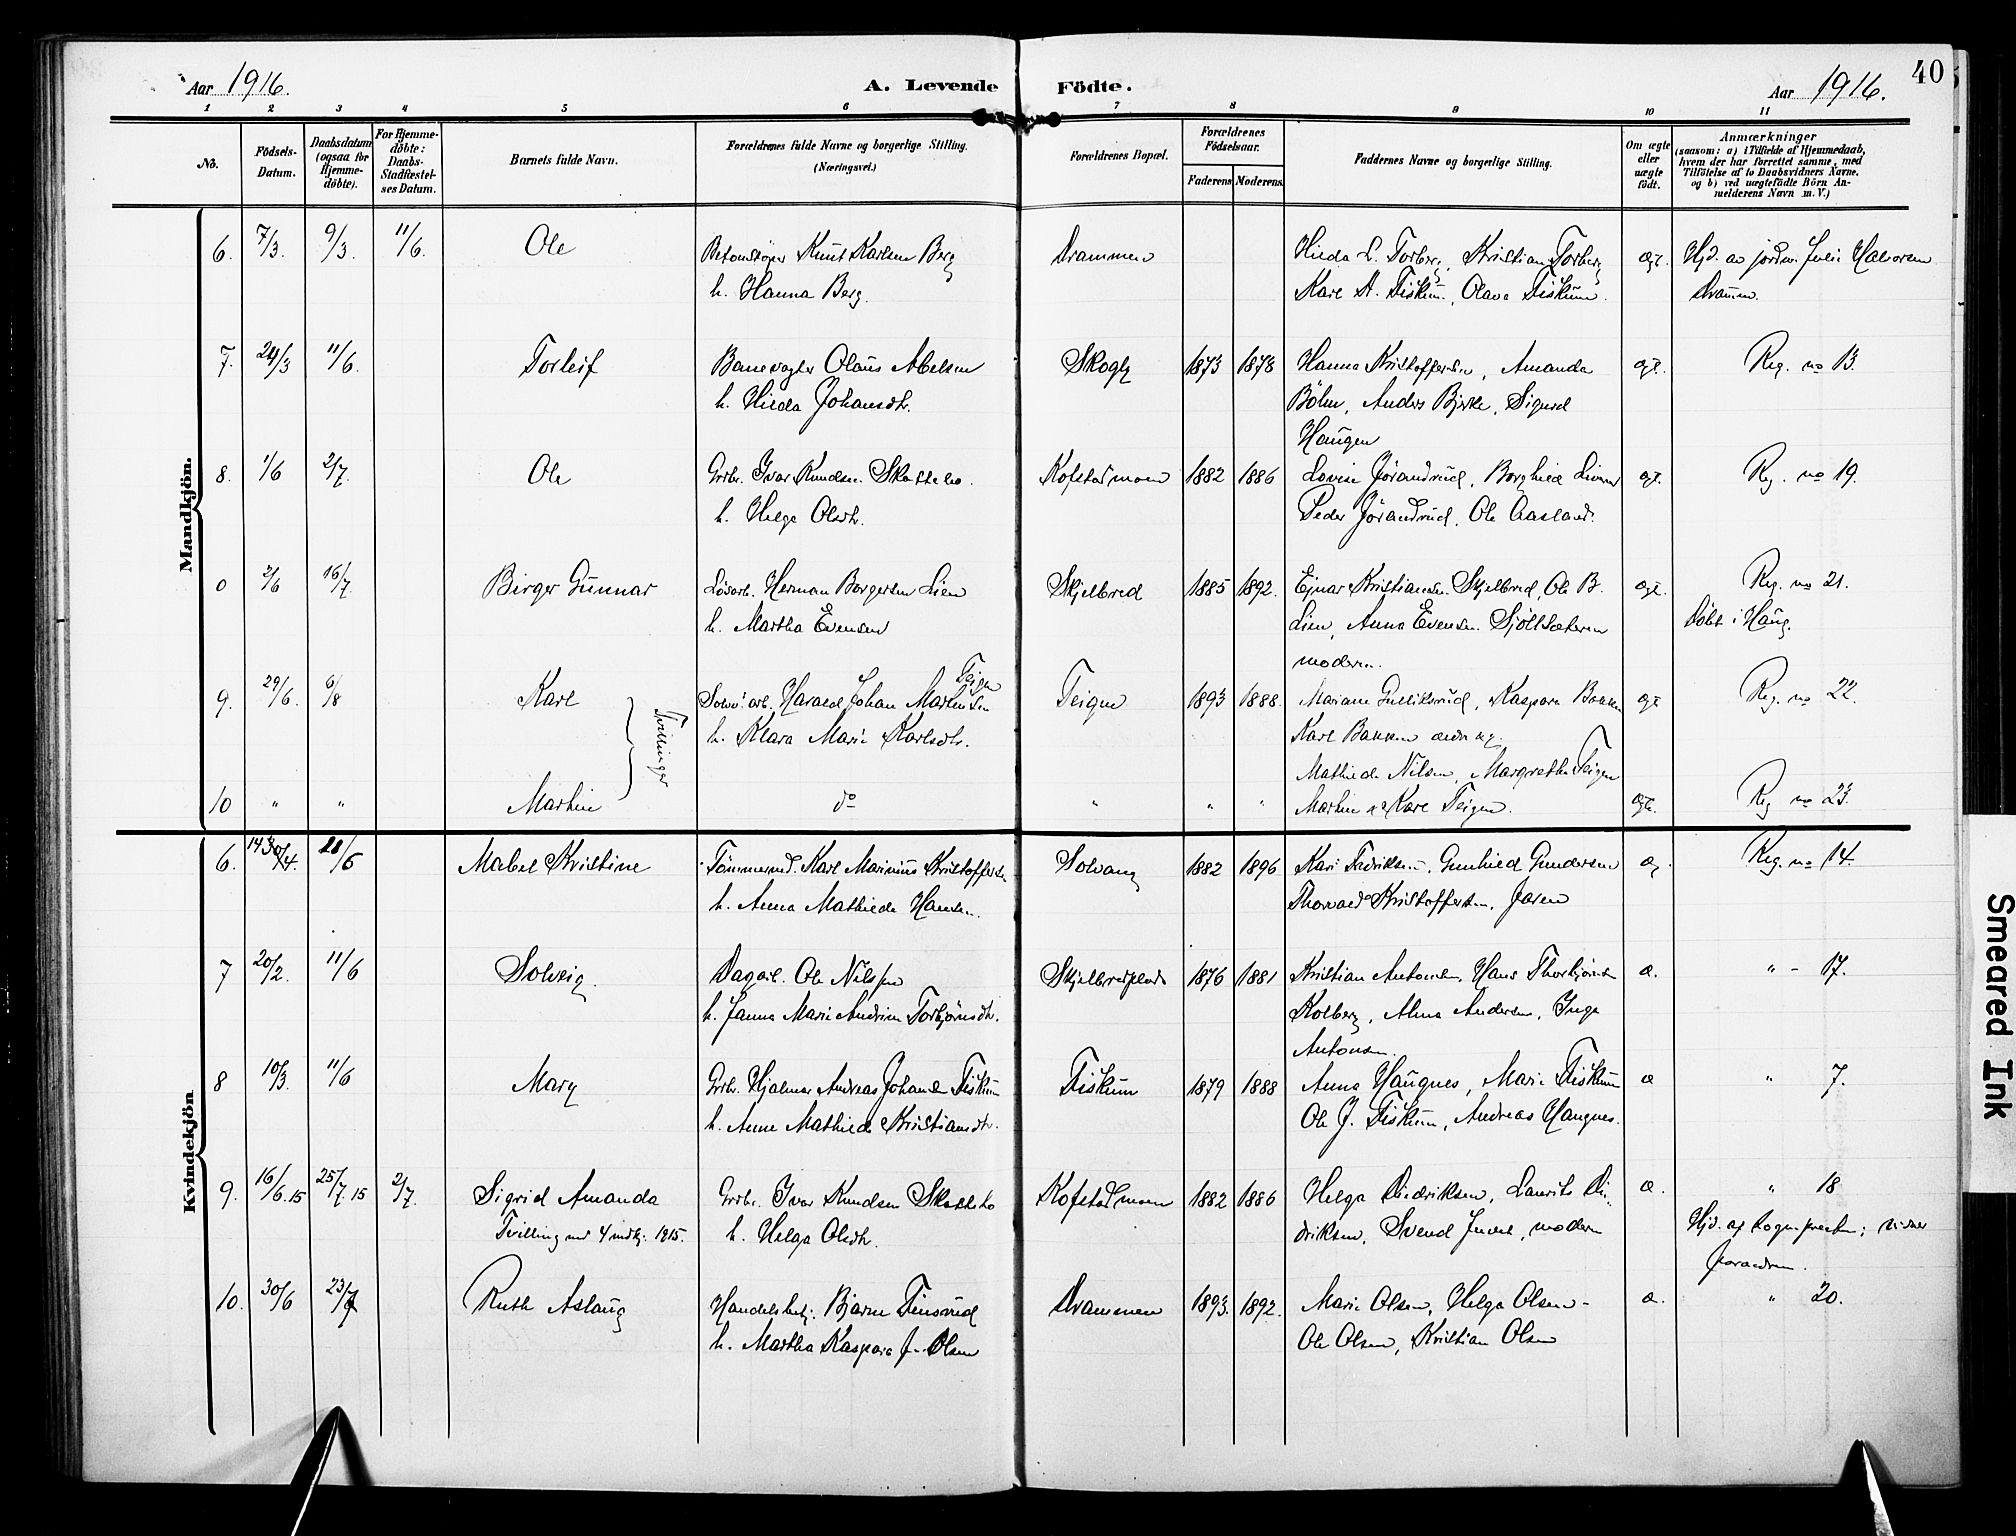 Aar 1916.
A. Levende Födte.
Aar 1916.
40
1 2 3 4 5 6 7 8 9 10 11
No.
Födsels-
Datum.
Daabsdatum
(ogsaa for
Hjemme-
döbte).
For Hjemme-
döbte:
Daabs-
Stadfæstel-
ses Datum.
Barnets fulde Navn.
Forældrenes fulde Navne og borgerlige Stilling.
(Næringsvei.)
Forældrenes Bopæl.
Forældrenes
Födselsaar.
Faderens. Moderens.
Faddernes Navne og borgerlige Stilling.
Om ægte
eller
uægte
födt.
Anmærkninger
(saasom: a) i Tilfælde af Hjemmedaab,
hvem der har forrettet samme, med
Tilföielse af to Daabsvidners Navne.
og b) ved uægtefödte Börn An-
melderens Navn m. V.)
Mandkjön.
6. 7/3. 9/3. 11/6. Ole Knut Karlsen Berg Drammen Hilda L. Torberg, Kristian Torberg ægt. Hjd. av jordm. Julie Halvorsen
h. Hanna Berg. Karl A. Fiskum, Olava Fiskum. Drammen.
7. 24/3 11/6. Torleif Banevogter Olaus Abelsen Skogly 1873 1878 Hanna Kristoffersen, Amanda ægt. Reg. no 13.
h. Hilda Johansdtr. Böhn, Anders Bjerke, Sigurd
Haugen
8. 1/6 2/7. Ole Grbr. Ivar Knudsen Skottebo. Kofstadmoen 1882 1886 Lovise Jörandrud, Borghild ægt. Reg. no 19.
h. Helga Olsdtr. Peder Jörandrud, Ole Aasland.
0 2/6 16/7. Birger Gunnar Lösarb. Herman Borgersen Lien Skjelbred 1885 1892. Ejnar Kristiansen Skjelbred, Ole B. ægt. Reg. no 21.
h. Martha Evensen Lien, Anna Evensen Sjöltsæteren Döbt i Haug.
moderen.
Teigen
9. 29/6. 6/8 Karl arb. Harald Johan Martinsen Teigen 1893 1888. Mariane Gulliksrud, Kaspara Bakken ægt Reg. no 22.
Tvillinger
h. Klara Marie Karlsdtr. Karl Bakken
Mathilde Nilsen, Margrethe Teigen
10 " " Martin do " " " Martin og Karl Teigen. ægt. Reg no 23.
Kvindekjön
6. 30/4. 28/5 Mabel Kristine Tömmermd. Karl Marinius Kristoffersen Solvang 1882 1896 Kari Fredriksen, Gunhild Gundersen æ. Reg. no 14.
h. Anna Mathilde Hansen. Thorvald Kristoffersen, Jaren
7 20/2. 11/6 Solveig. Dagarb. Ole Nilsen Skjelbredplads 1876 1881 Kristian Antonsen, Hans Thorbjörnsen æ. " - 17.
h. Janna Marie Andrine Torbjörnsdtr. Kolberg, Alma Andersen, Inga
Antonsen.
8 10/3. 11/6 Mary Grbr. Hjalmar Andreas Johansen Fiskum Fiskum 1879 1888 Anna Haugnes, Marie Fiskum æ " 7.
h. Anne Mathilde Kristiansdtr. Ole J. Fiskum, Andreas Haugnes.
9. 16/6.15 25/7.15 2/7. Sigrid Amanda Grbr. Ivar Knudsen Skottebo Kofstadmoen 1882 1886 Helga Diedriksen, Laurits Die- æ. " 18
Tvilling med 4 mdkj. 1915. h. Helga Olsdtr. driksen, Svend Juvet, moderen Hjd. af sognepresten; vidner
forældrene.
10. 30/6 23/7 Ruth Aslaug Handelsbetj. Bjarne Finsrud Drammen 1893. 1892. Marie Olsen, Helga Olsen - æ. " 20.
h. Martha Kaspara J. Olsen Ole Olsen, Kristian Olsen
Smeared Ink